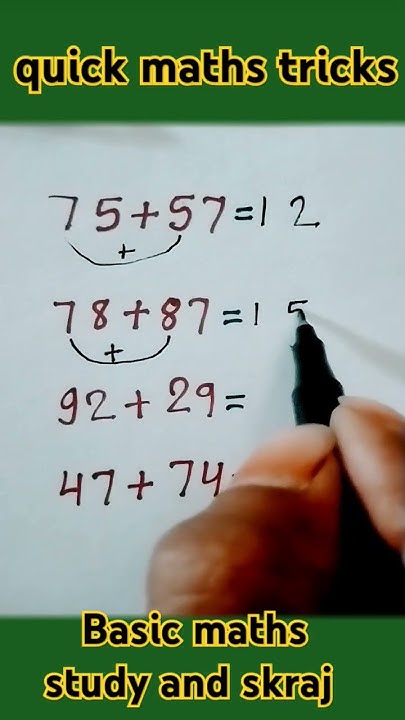 quick maths tricks
75+57=1 2
+
78+87=1 5
+
92+29=
47+74
Basic maths
study and skraj